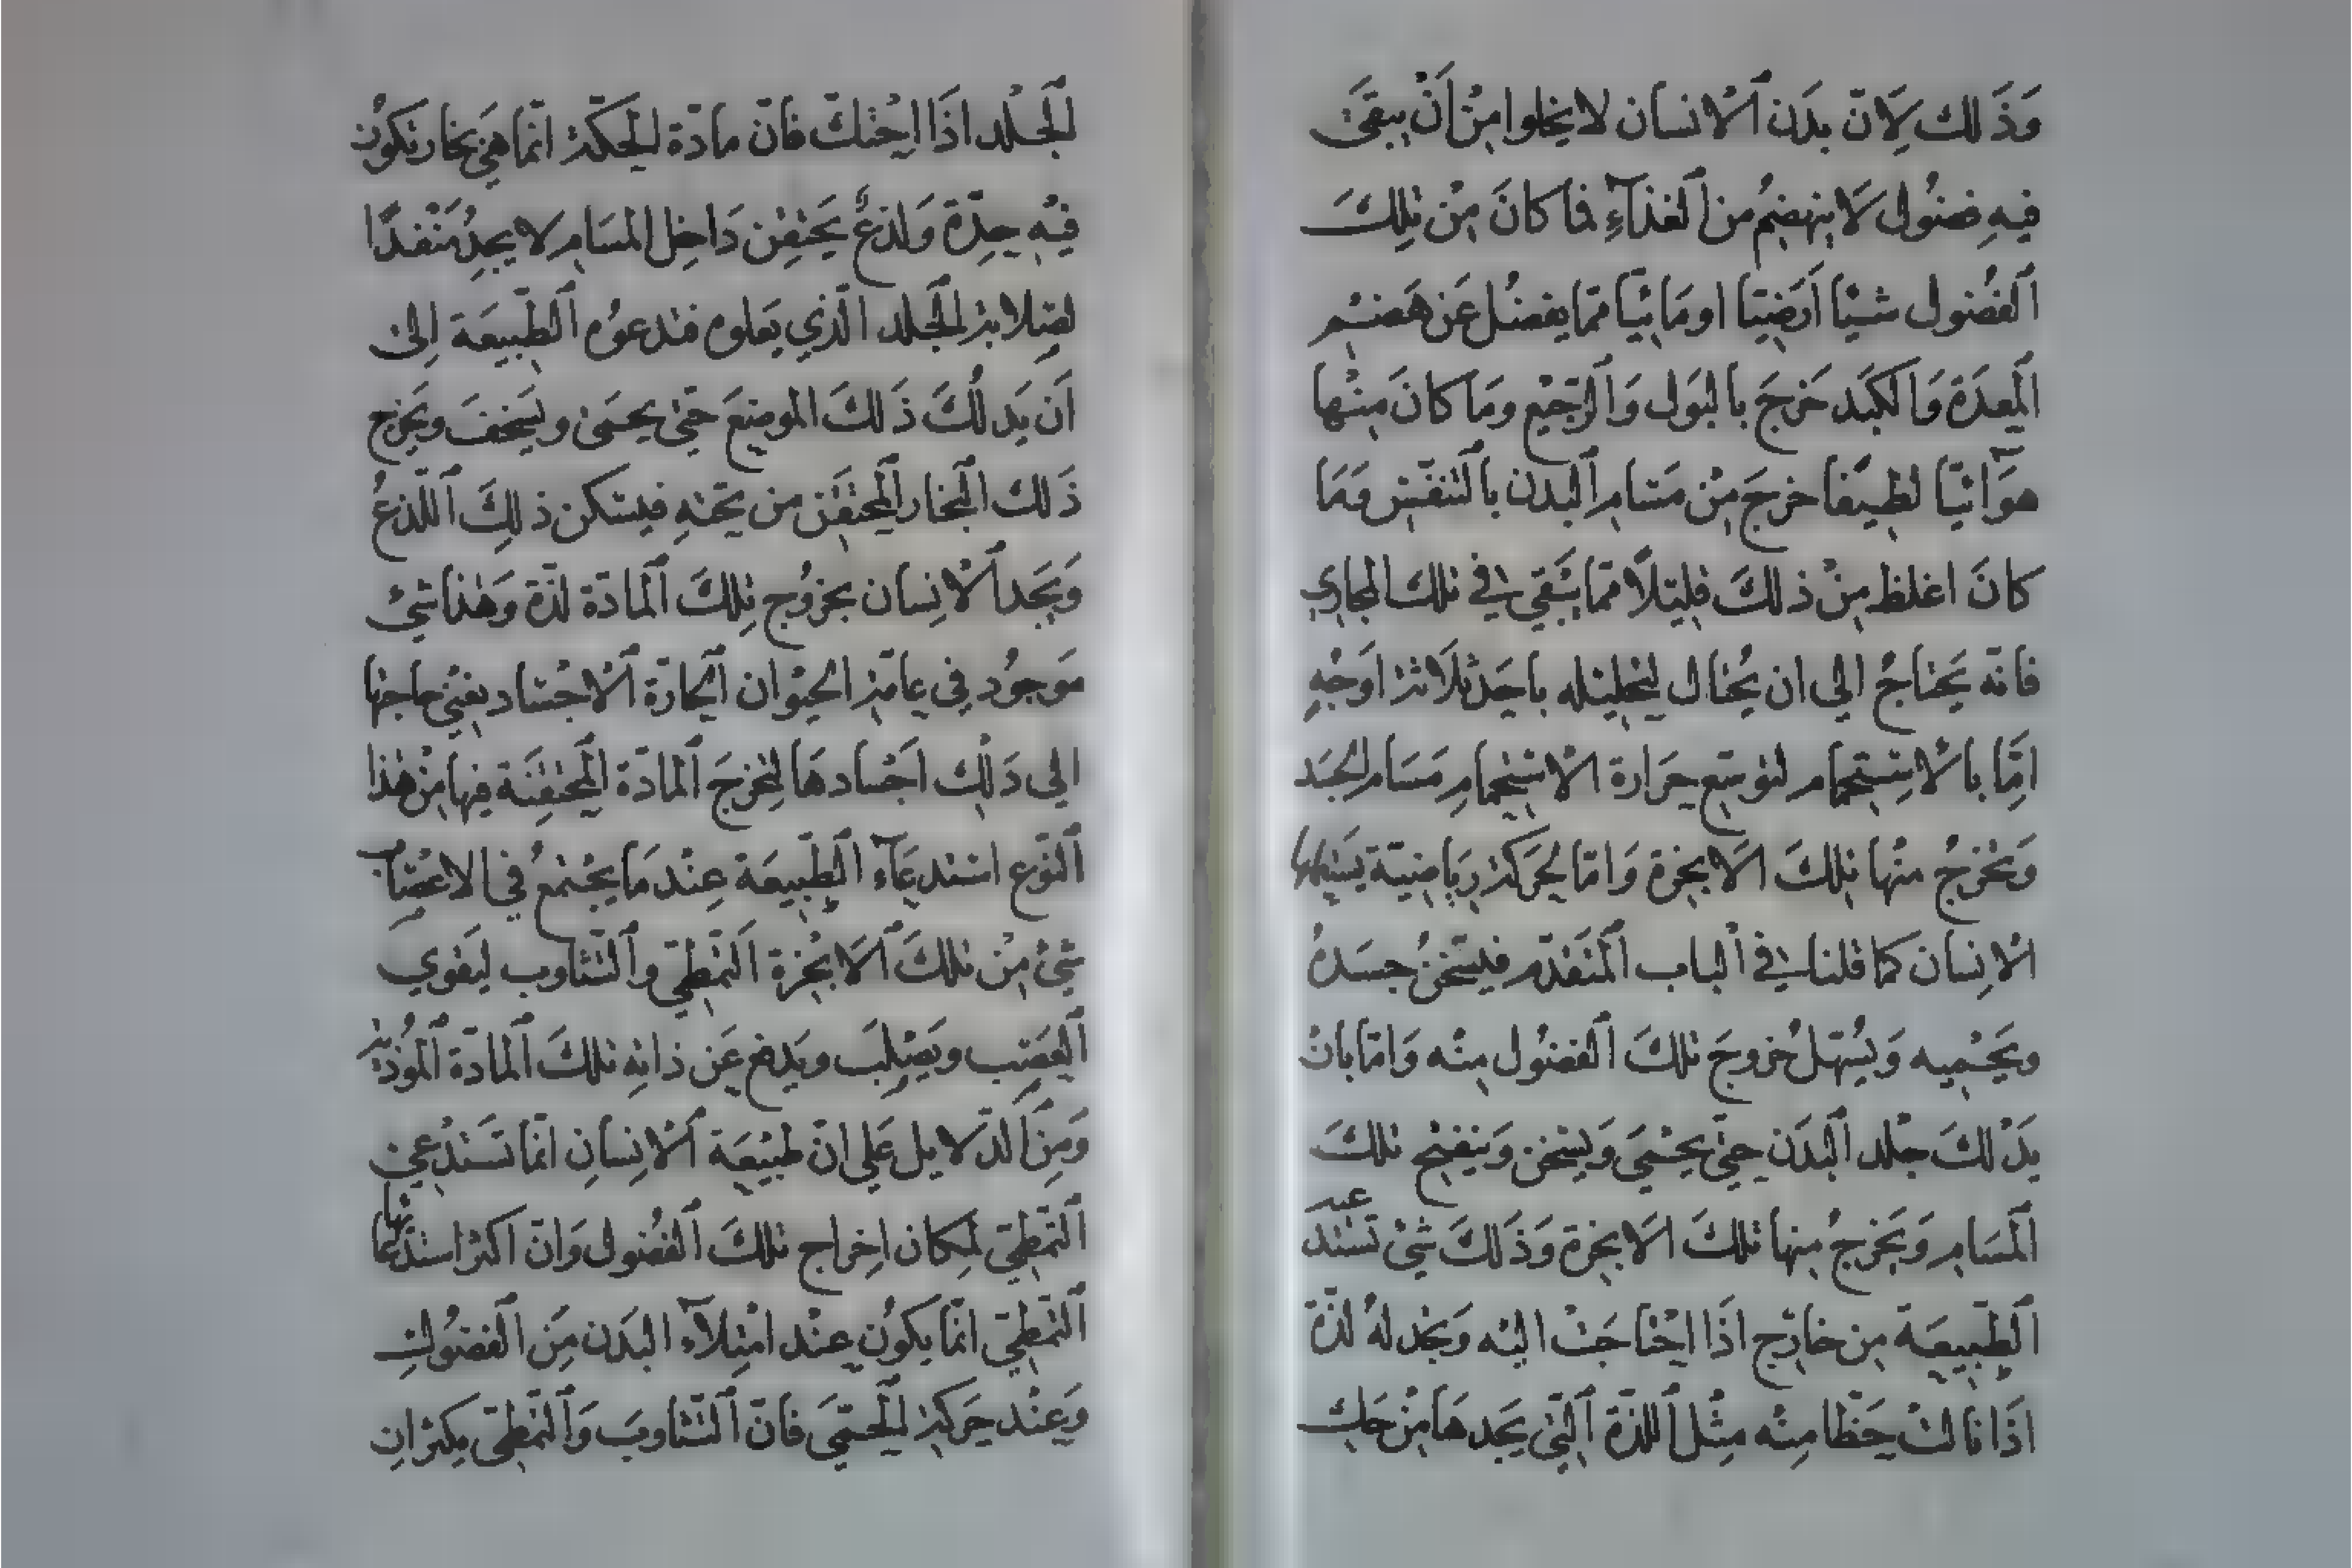 وَذَ لك لِاَنّ بدَن اَلْانسان لا يخلوا مِنْ اَنْ يبقَىٰ
فيهِ فضُول لَا ينهضِمُ من اَلغذآءِ فما كانَ مِن تِلكَ
اَلفضُول شيْئا اَرَضِيّا او مَائيّا ممّا يفضُل عَن هَضْم
اَلمعِدَة وَاَلكَبِد خَرجَ بالبَول وَاَلرّجيْع ومَا كانَ مِنْها
هوَآئيّا لطِيفا خرجَ مِن مَسَام اَلبدن باَلتنفّس وَمَا
كانَ اغلظ مِنْ ذلكَ قليْلاً ممّا يَبْقي في تلك المجاري
فانّه يَحتاجُ الي ان يُحتال لتحْليْله باحَد ثَلَاثة اَوجُهٍ
امِّا بالْاِستِحْمام لتوسّع حَرَارة الْاستِحْمامِ مَسَام الجسَد
وَتخرجُ منْها تلكَ الَابخرة وَامّا بحَركة رِيَاضيّة يسَتعملها
الْاِنسَان كما قلنا في اْلباب اَلمتَقدّم فيسْخنُ جسَدهُ
ويَحْميه وَيُسْهّلُ خروجَ تلكَ اَلفضُول مِنْه وَامّا بانْ
يَدْلكَ جلْد اَلبدَن حتّي يحْمَي وَيسْخن وَينفتح تلكَ
اَلمسَام وَيَخرجُ مِنها تلكَ الَابخرة وَذَ لكَ شيْ تَستَدعيه
اَلطّبِيعَة مِن خَارِج اذَا احْتاجَتْ اليْه وَتجْد لهُ لذّة
اذَا نالتْ حَظّا مِنْه مثِل اَللذّة اَلتّي يَجدهَا مِنْ حَكّ
اَلجلْد اذَا احْتكّ فانّ مادّة اَلحكّة انّما هِيَ بخار تكوُن
فيْه حِدّة وَلذعٌ يَحتقِن دَاخِل المسَام لا يجدُ مَنْفذًا
لصِلابة اَلجلد الّذي يَعلوه فتدعوُه اَلطّبيعَة اِلى
اَن يَدلُكَ ذَلكَ الموضِعَ حتّىٰ يحمَىٰ ويسَخفَ ويَخرج
ذَلك اَلبخار اَلمحتَقَن من تَحْتهِ فيسَكن ذلِكَ اَللّذعُ
وَيَجَد اَلْانِسان بخرُوج تِلكَ اَلمادّة لذّة وَهٰذا شيْ
مَوجُود فِي عامّة الحيْوان اَلحارّة اَلْاجْسَاد يعني حاجتها
الي دَلْك اَجْسادهَا لتَخرجَ اَلمادّة اَلمحتقِنَة فيها مِنْ هٰذا
اَلنّوع استدعَآء اَلطّبيعَة عِنْد مَا يجْتمعُ في الاعصَاب
شيْ مِن تلكَ اَلَابْخرة اَلتّمطّي واَلتثاوب ليَقوي
اَلعصَب ويَصْلبَ ويَدفع عَن ذاتهِ تلكَ اَلمادّة اَلموُذية
وَمِنَ الدّلايل عَلي انّ طبيْعَة اَلْانِسانِ انّما تَسَتدْعي
اَلتّمطّي لمكَان اخِراج تلكَ اَلفُضُول وَانّ اكثر استدعائها
اَلتّمطّي انّما يكوُن عِنْد امْتلآء البدَن مِنَ اَلفضُولِ
وَعِنْد حَركة اَلحمّيَ فانّ اَلتّثاوبَ وَاَلتّمطّي يكثرانِ